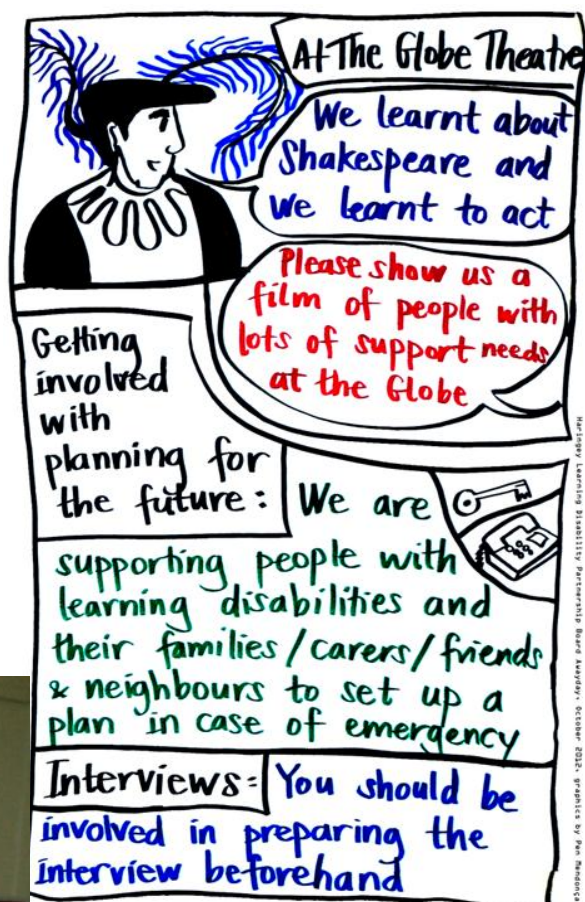 At The Globe Theatre
We learnt about
Shakespeare and
we learnt to act
Please show us a
film of people with
lots of support needs
at the Globe
Getting
involved
with
planning for
the future :
We are
supporting people with
learning disabilities and
their families / carers / friends
& neighbours to set up a
plan in case of emergency
Interviews :
You should be
involved in preparing the
interview beforehand
Haringey Learning Disability Partnership Board Awayday, October 2012, graphics by Pen Mendonça